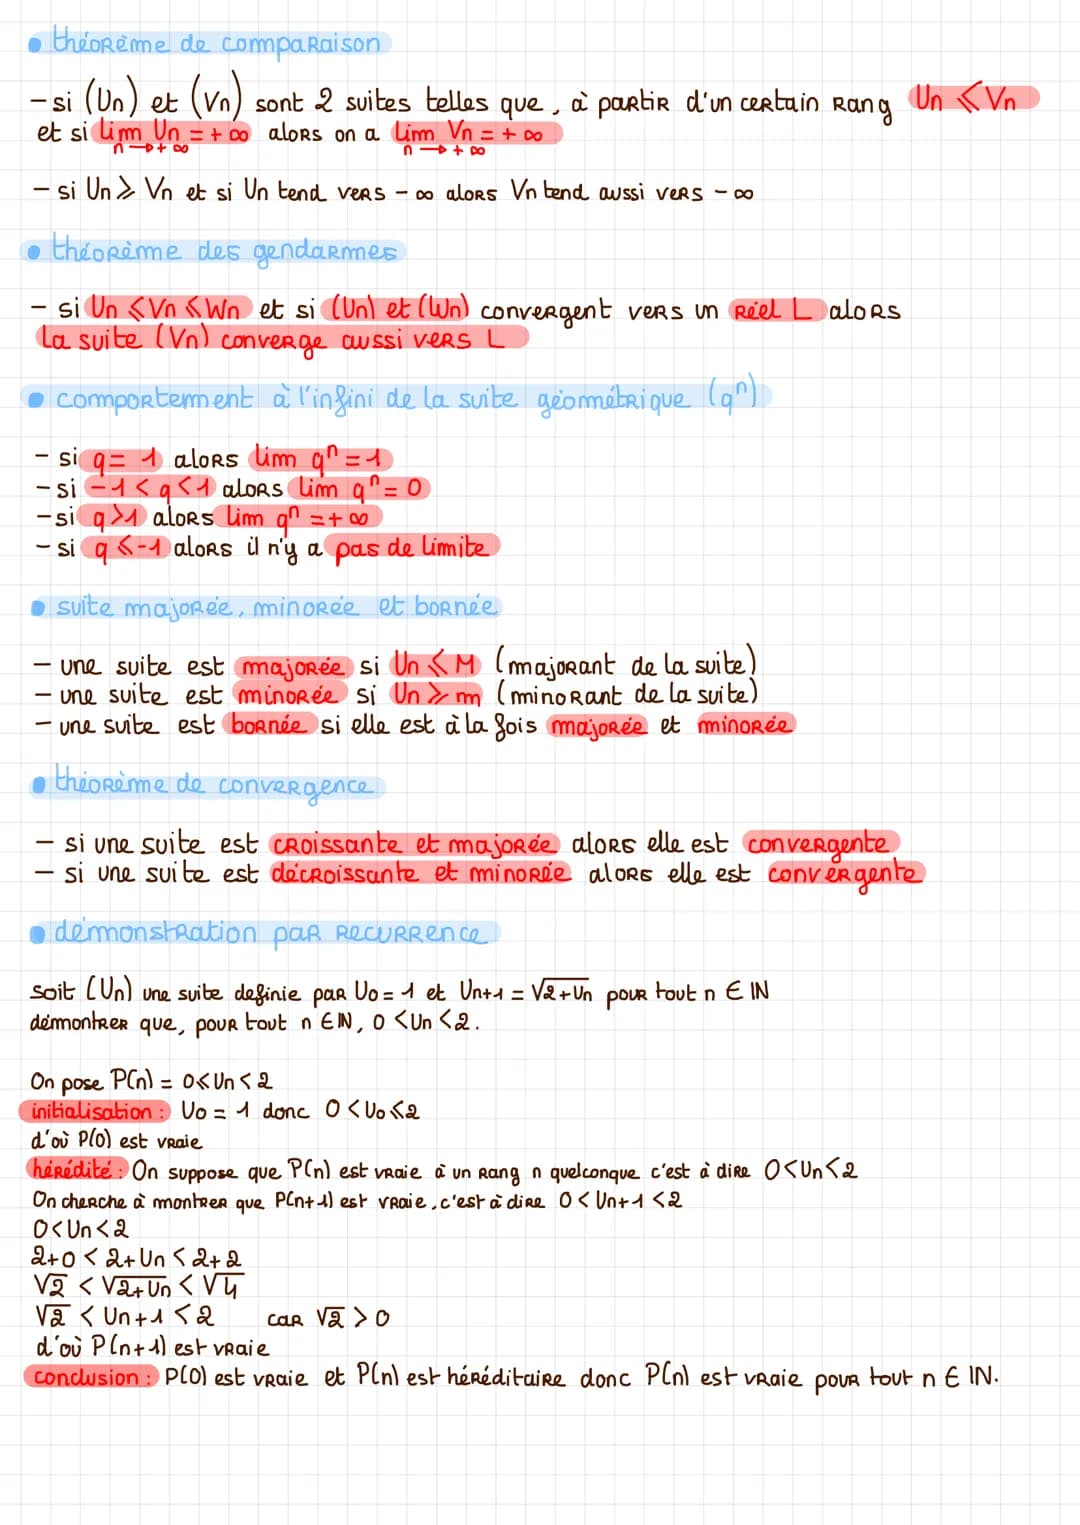 • théorème de comparaison
- si (Un) et (Vn) sont 2 suites telles que, à partir d'un certain rang Un ⩽ Vn
et si lim Un = + ∞ alors on a lim Vn = + ∞
n → + ∞ n → + ∞
- si Un ⩾ Vn et si Un tend vers - ∞ alors Vn tend aussi vers - ∞
• théorème des gendarmes
- si Un ⩽ Vn ⩽ Wn et si (Un) et (Wn) convergent vers un réel L alors
la suite (Vn) converge aussi vers L
• comportement à l'infini de la suite géométrique (qⁿ)
- si q = 1 alors lim qⁿ = 1
- si -1 < q < 1 alors lim qⁿ = 0
- si q > 1 alors lim qⁿ = + ∞
- si q ⩽ -1 alors il n'y a pas de limite
• suite majorée, minorée et bornée
- une suite est majorée si Un ⩽ M (majorant de la suite)
- une suite est minorée si Un ⩾ m (minorant de la suite)
- une suite est bornée si elle est à la fois majorée et minorée
• théorème de convergence
- si une suite est croissante et majorée alors elle est convergente
- si une suite est décroissante et minorée alors elle est convergente
• démonstration par recurrence
soit (Un) une suite definie par U0 = 1 et Un+1 = √2+Un pour tout n ∈ IN
démontrer que, pour tout n ∈ IN, 0 < Un < 2.
On pose P(n) = 0 ⩽ Un < 2
initialisation : U0 = 1 donc 0 < U0 ⩽ 2
d'où P(0) est vraie
hérédité : On suppose que P(n) est vraie à un rang n quelconque c'est à dire 0 < Un < 2
On cherche à montrer que P(n+1) est vraie, c'est à dire 0 < Un+1 < 2
0 < Un < 2
2+0 < 2+Un < 2+2
√2 < √2+Un < √4
√2 < Un+1 < 2 car √2 > 0
d'où P(n+1) est vraie
conclusion : P(0) est vraie et P(n) est héréditaire donc P(n) est vraie pour tout n ∈ IN.